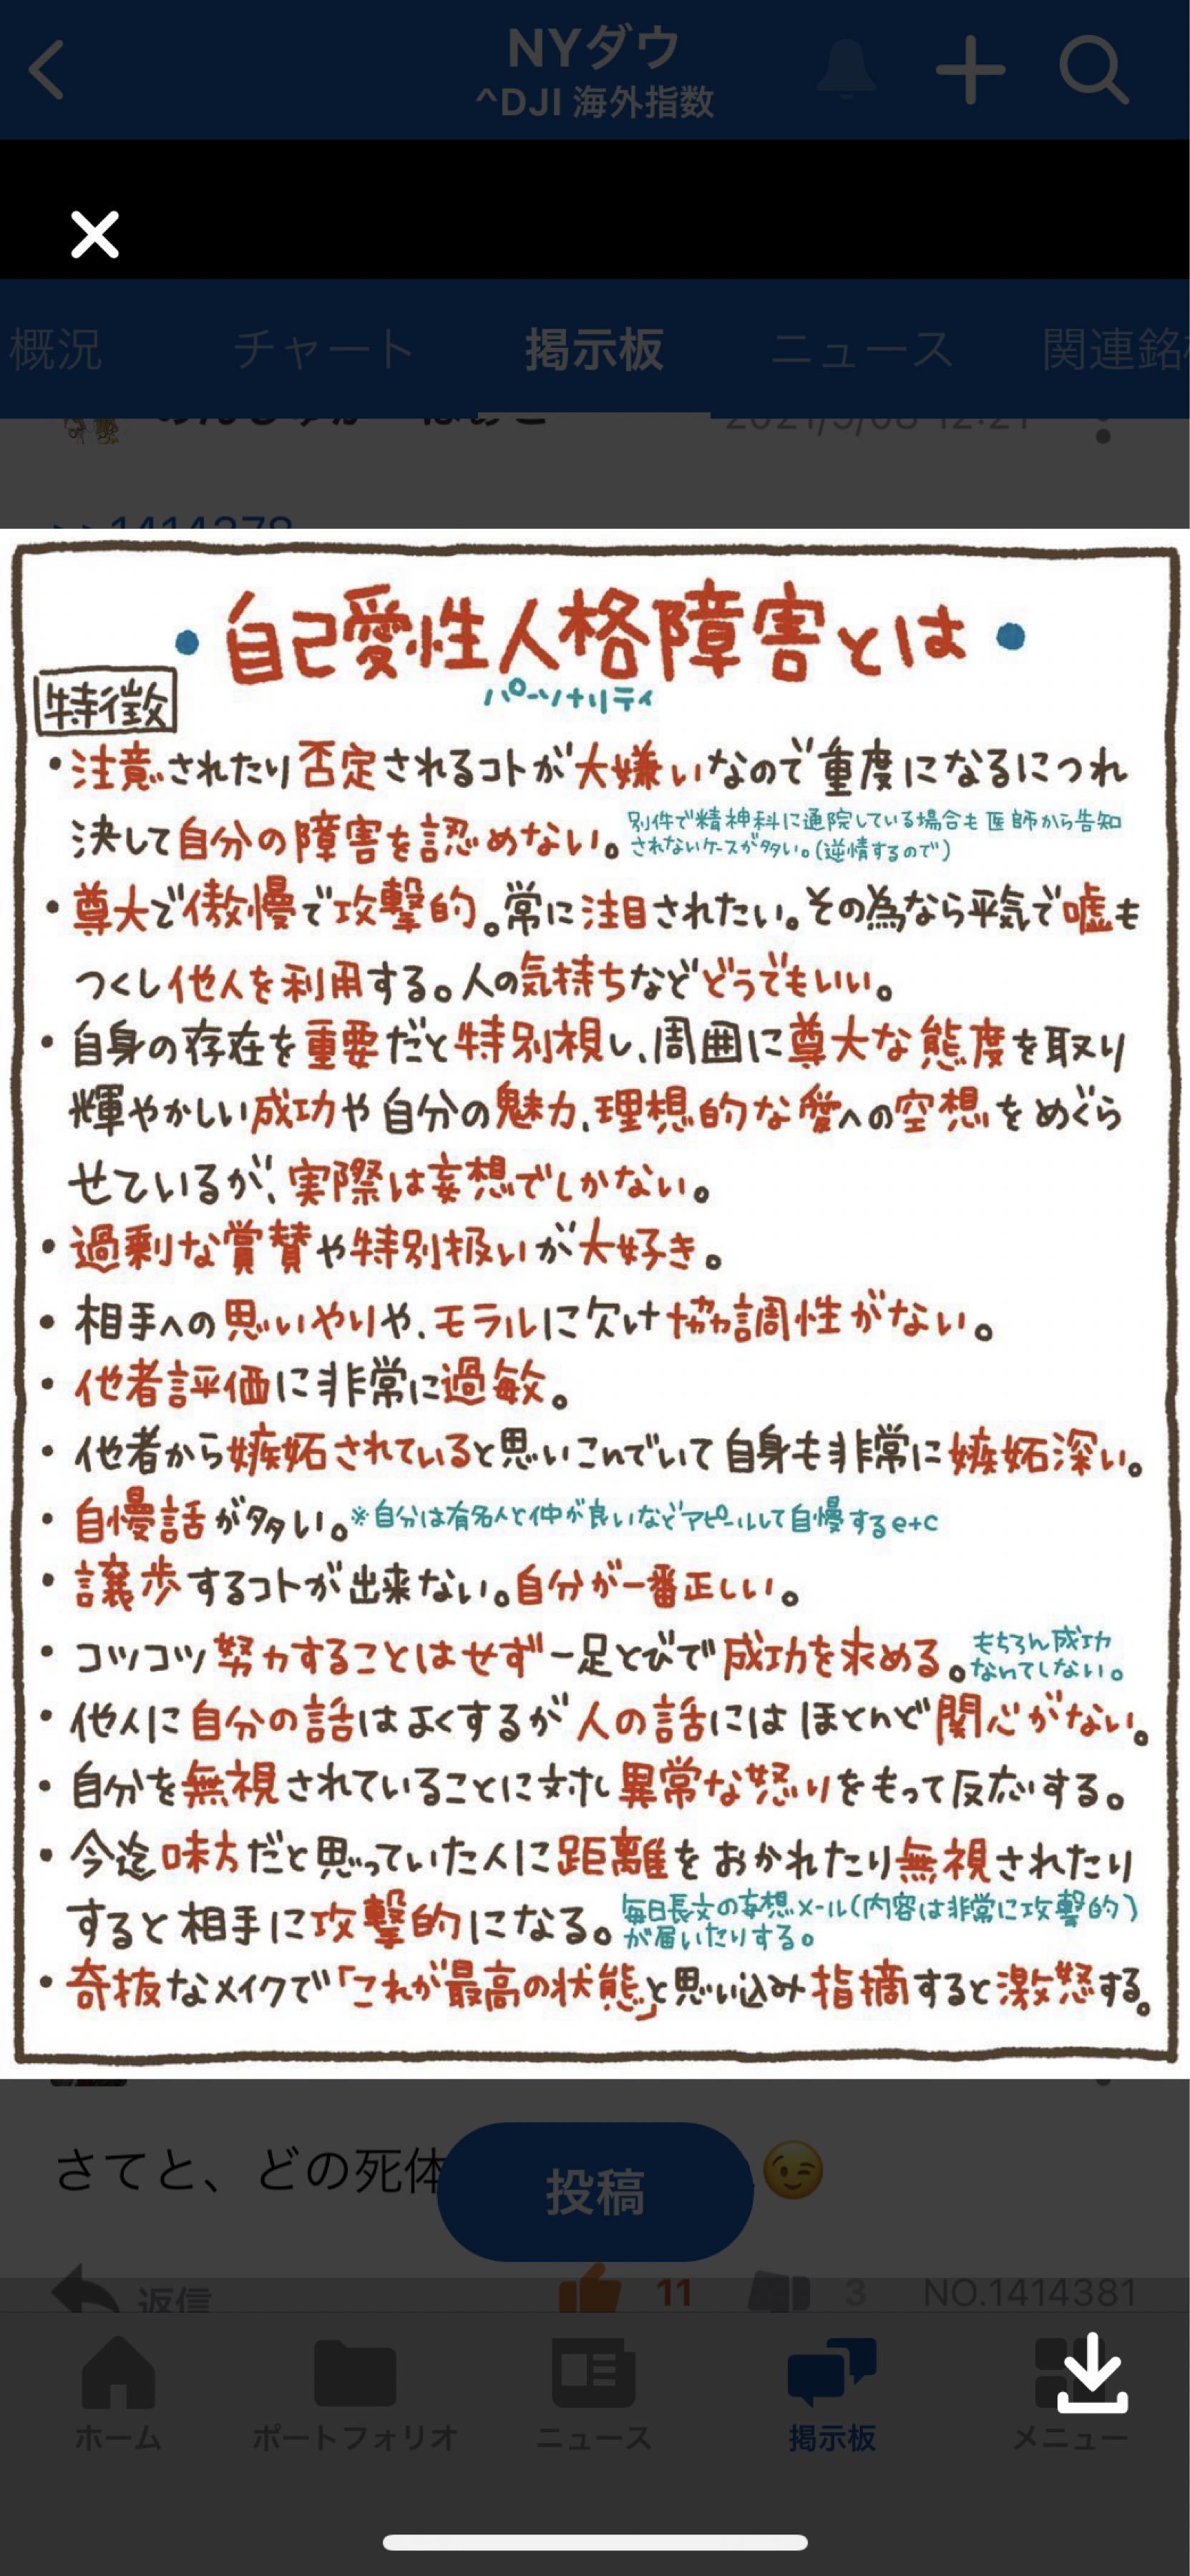 NYダウ
^DJI 海外指数
概況 チャート 掲示板 ニュース 関連銘
自己愛性人格障害とは
パーソナリティ
特徴
・注意されたり否定されるコトが大嫌いなので重度になるにつれ
決して自分の障害を認めない。
別件で精神科に通院している場合も医師から告知
されないケースが多い。(逆情するので)
・尊大で傲慢で攻撃的。常に注目されたい。その為なら平気で嘘も
つくし他人を利用する。人の気持ちなどどうでもいい。
・自身の存在を重要だと特別視し、周囲に尊大な態度を取り
輝やかしい成功や自分の魅力、理想的な愛への空想をめぐら
せているが、実際は妄想でしかない。
・過剰な賞賛や特別扱いが大好き。
・相手への思いやりや、モラルに欠け協調性がない。
・他者評価に非常に過敏。
・他者から嫉妬されていると思いこんでいて自身も非常に嫉妬深い。
・自慢話が多い。※自分は有名人と仲が良いなどアピールして自慢するe+c
・譲歩するコトが出来ない。自分が一番正しい。
・コツコツ努力することはせず一足とびで成功を求める。
もちろん成功
なんてしない。
・他人に自分の話はよくするが人の話にはほとんど関心がない。
・自分を無視されていることに対し異常な怒りをもって反応する。
・今迄味方だと思っていた人に距離をおかれたり無視されたり
すると相手に攻撃的になる。
毎日長文の妄想メール(内容は非常に攻撃的)
が届いたりする。
・奇抜なメイクで「これが最高の状態」と思い込み指摘すると激怒する。
さてと、どの死体
投稿
返信 11 3 NO.1414381
ホーム ポートフォリオ ニュース 掲示板 メニュー